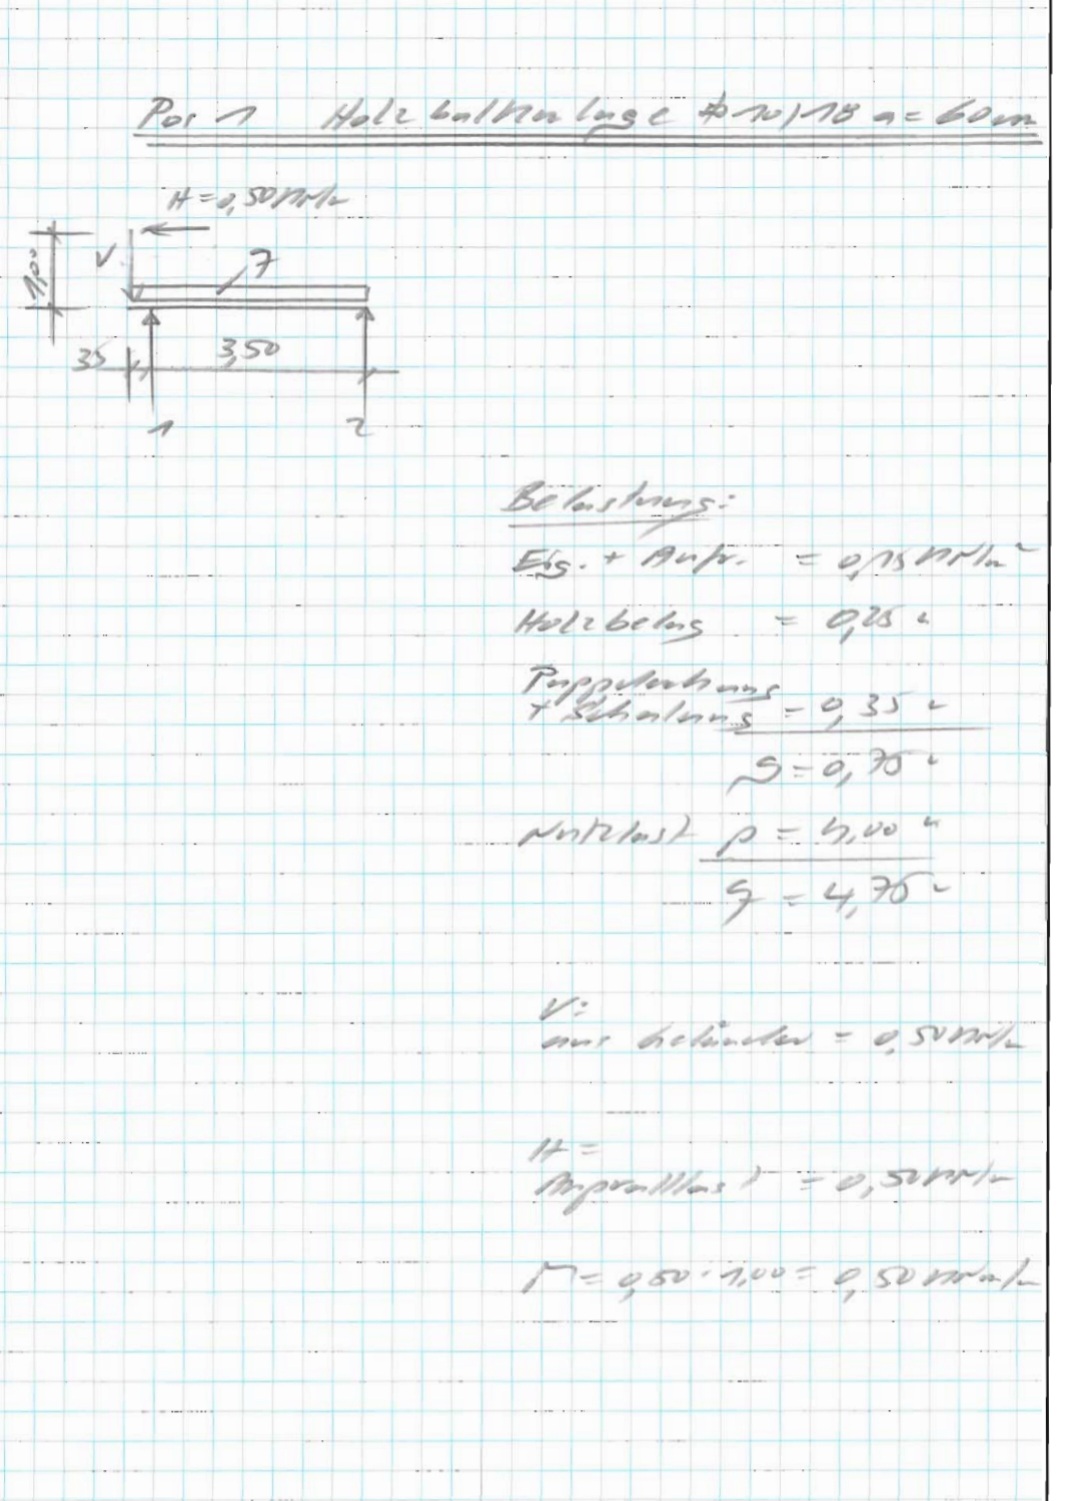 Pos 1 Holzbalkenlage # 10/18 a = 60 cm
H = 0,50 KN/m
V
q
1,00
35 3,50
1 2
Belastung:
Eig. + Aufr. = 0,15 KN/m²
Holzbelag = 0,25 "
Pappdachung
+ Schalung = 0,35 "
g = 0,75 "
Nutzlast p = 4,00 "
q = 4,75 "
V:
aus Geländer = 0,50 KN/m
H =
Anprallast = 0,50 KN/m
M = 0,50 · 1,00 = 0,50 KNm/m